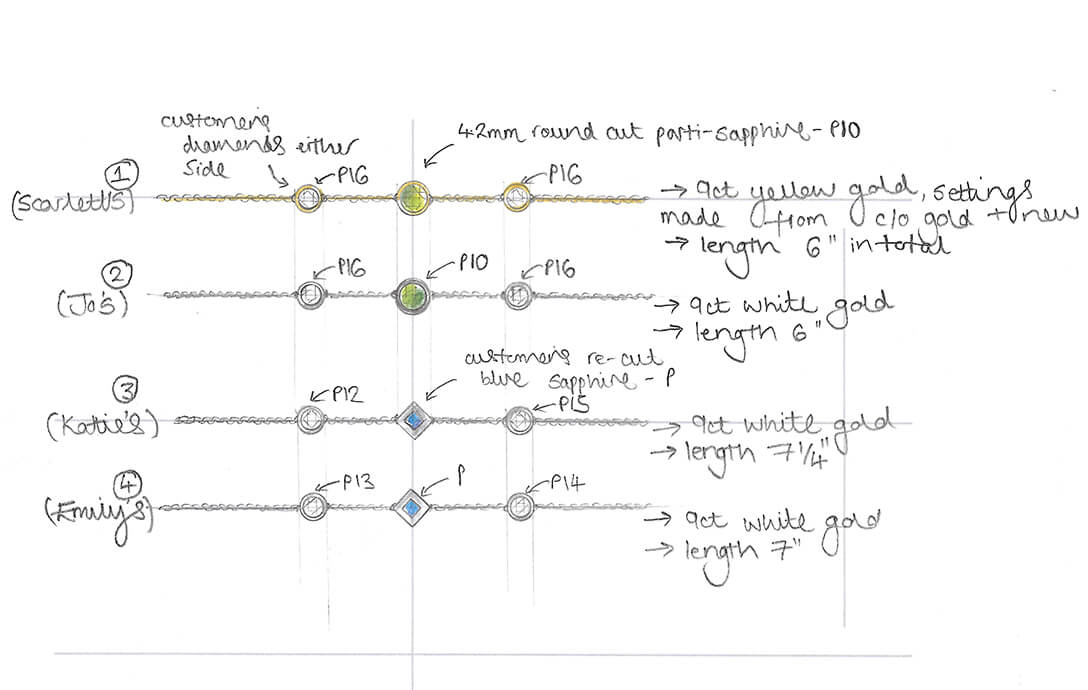 customer's
diamonds either
side
4.2mm round cut parti-sapphire - P10
1
P16
P16
(Scarlett's)
→ 9ct yellow gold, settings
made from c/o gold + new
→ length 6" in total
2
P16
P10
P16
(Jo's)
→ 9ct white gold
→ length 6"
customer's re-cut
blue sapphire - P
3
P12
P15
(Katie's)
→ 9ct white gold
→ length 7 1/4"
4
P13
P
P14
(Emily's)
→ 9ct white gold
→ length 7"